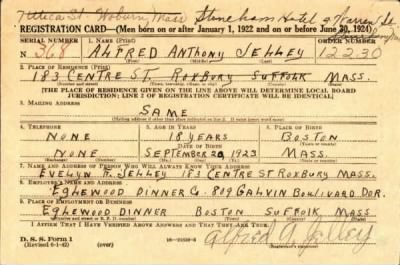 Utica St. Woburn, Mass Stoneham Hotel 9 Warren St
REGISTRATION CARD—(Men born on or after January 1, 1922 and on or before June 30, 1924)
SERIAL NUMBER 1. NAME (Print) ORDER NUMBER
N 368 ALFRED ANTHONY JELLEY 12290
(First) (Middle) (Last)
2. PLACE OF RESIDENCE (Print)
183 CENTRE ST. ROXBURY SUFFOLK MASS.
[THE PLACE OF RESIDENCE GIVEN ON THE LINE ABOVE WILL DETERMINE LOCAL BOARD
JURISDICTION; LINE 2 OF REGISTRATION CERTIFICATE WILL BE IDENTICAL]
3. MAILING ADDRESS
SAME
[Mailing address if other than place indicated on line 2. If same insert word same]
4. TELEPHONE 5. AGE IN YEARS 6. PLACE OF BIRTH
NONE 18 YEARS BOSTON
DATE OF BIRTH
NONE SEPTEMBER 29 1923 MASS.
(Exchange) (Number) (Mo.) (Day) (Yr.) (State or country)
7. NAME AND ADDRESS OF PERSON WHO WILL ALWAYS KNOW YOUR ADDRESS
EVELYN A. JELLEY 183 CENTRE ST ROXBURY MASS.
8. EMPLOYER'S NAME AND ADDRESS
EGLEWOOD DINNER CO. 809 GALVIN BOULIVARD DOR.
9. PLACE OF EMPLOYMENT OR BUSINESS
EGLEWOOD DINNER BOSTON SUFFOLK MASS
I AFFIRM THAT I HAVE VERIFIED ABOVE ANSWERS AND THAT THEY ARE TRUE.
D. S. S. Form 1
(Revised 6-9-42) (over)
Alfred A. Jelley
(Registrant's signature)